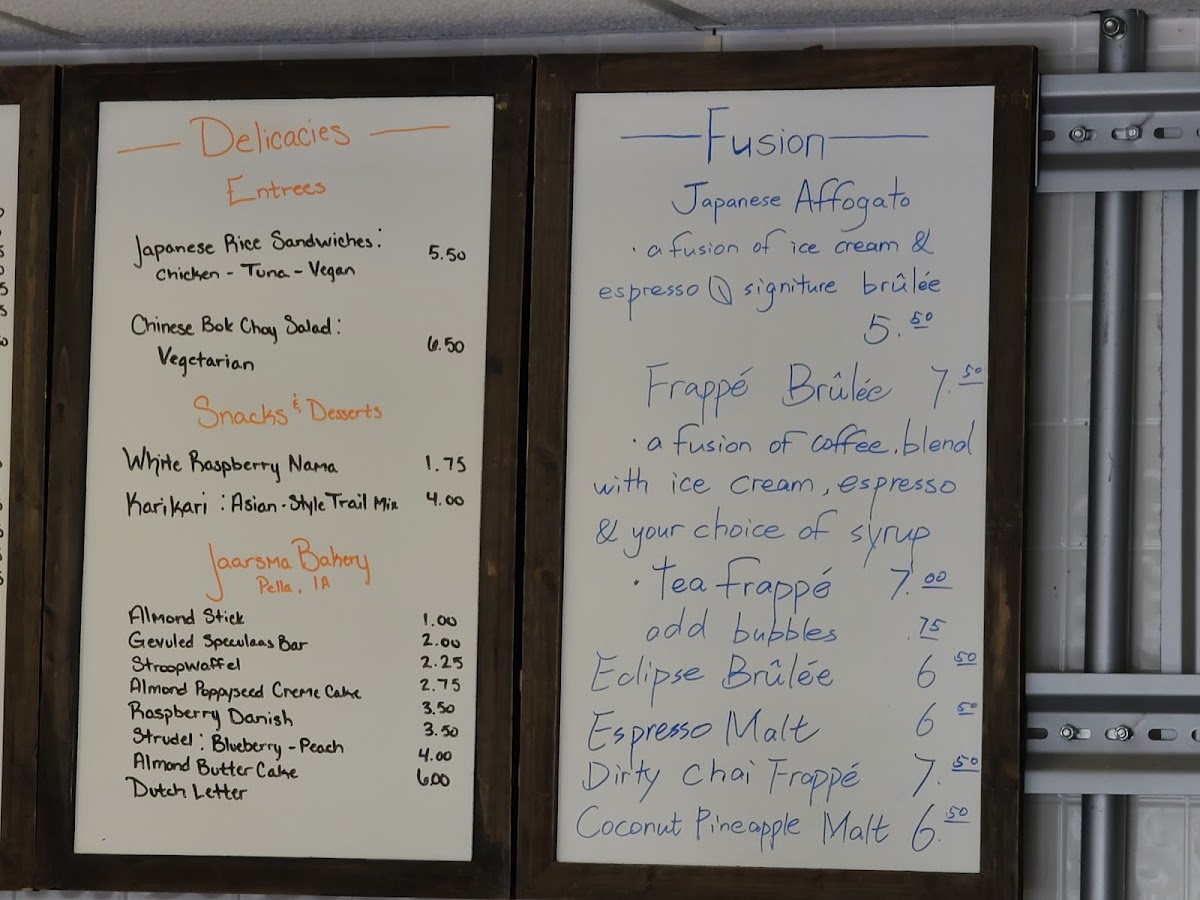 Delicacies
Entrees
Japanese Rice Sandwiches: 5.50
Chicken - Tuna - Vegan
Chinese Bok Choy Salad: 6.50
Vegetarian
Snacks & Desserts
White Raspberry Nama 1.75
Kari Kari : Asian-Style Trail Mix 4.00
Jaarsma Bakery
Pella, IA
Almond Stick 1.00
Gevuled Speculaas Bar 2.00
Stroopwaffel 2.25
Almond Poppyseed Creme Cake 2.75
Raspberry Danish 3.50
Strudel: Blueberry - Peach 3.50
Almond Butter Cake 4.00
Dutch Letter 6.00
Fusion
Japanese Affogato
· a fusion of ice cream &
espresso signiture brûlée
5.50
Frappé Brûlée 7.50
· a fusion of coffee, blend
with ice cream, espresso
& your choice of syrup
· Tea frappé 7.00
add bubbles .75
Eclipse Brûlée 6 50
Espresso Malt 6 50
Dirty Chai Frappé 7.50
Coconut Pineapple Malt 6.50